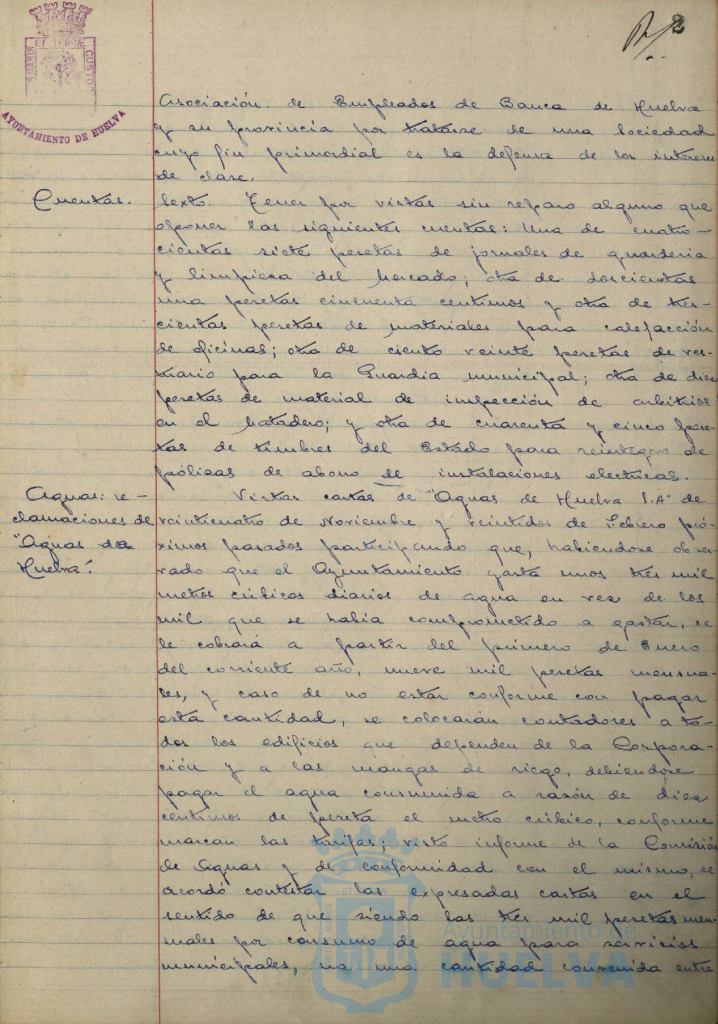 2
AYUNTAMIENTO DE HUELVA
Asociación de Empleados de Banca de Huelva
y su provincia por tratarse de una Sociedad
cuyo fin primordial es la defensa de los intereses
de clase.
Cuentas.
Sexto. Tener por vistas sin reparo alguno que
oponer las siguientes cuentas: Una de cuatro-
cientas siete pesetas de jornales de guarderia
y limpieza del Mercado; otra de doscientas
una pesetas cincuenta centimos y otra de tres-
cientas pesetas de materiales para calefacción
de oficinas; otra de ciento veinte pesetas de ves-
tuario para la Guardia municipal; otra de diez
pesetas de material de inspección de arbitrios
en el Matadero; y otra de cuarenta y cinco pese-
tas de timbres del Estado para reintegro de
pólizas de abono de instalaciones electricas.
Aguas: re-
clamaciones de
"Aguas de
Huelva".
Vistas cartas de "Aguas de Huelva S.A" de
veinticuatro de Noviembre y veintidos de Febrero pró-
ximos pasados participando que, habiendose obser-
vado que el Ayuntamiento gasta unos tres mil
metros cúbicos diarios de agua en vez de los
mil que se había comprometido a gastar, se
le cobrará a partir del primero de Enero
del corriente año, nueve mil pesetas mensua-
les, y caso de no estar conforme con pagar
esta cantidad, se colocarán contadores a to-
dos los edificios que dependen de la Corpora-
ción y a las mangas de riego, debiendose
pagar el agua consumida a razón de diez
centimos de peseta el metro cúbico, conforme
marcan las tarifas; visto informe de la Comisión
de Aguas y de conformidad con el mismo, se
acordó contestar las expresadas cartas en el
sentido de que siendo las tres mil pesetas men-
suales por consumo de agua para servicios
municipales, no una cantidad convenida entre
Ayuntamiento de
HUELVA